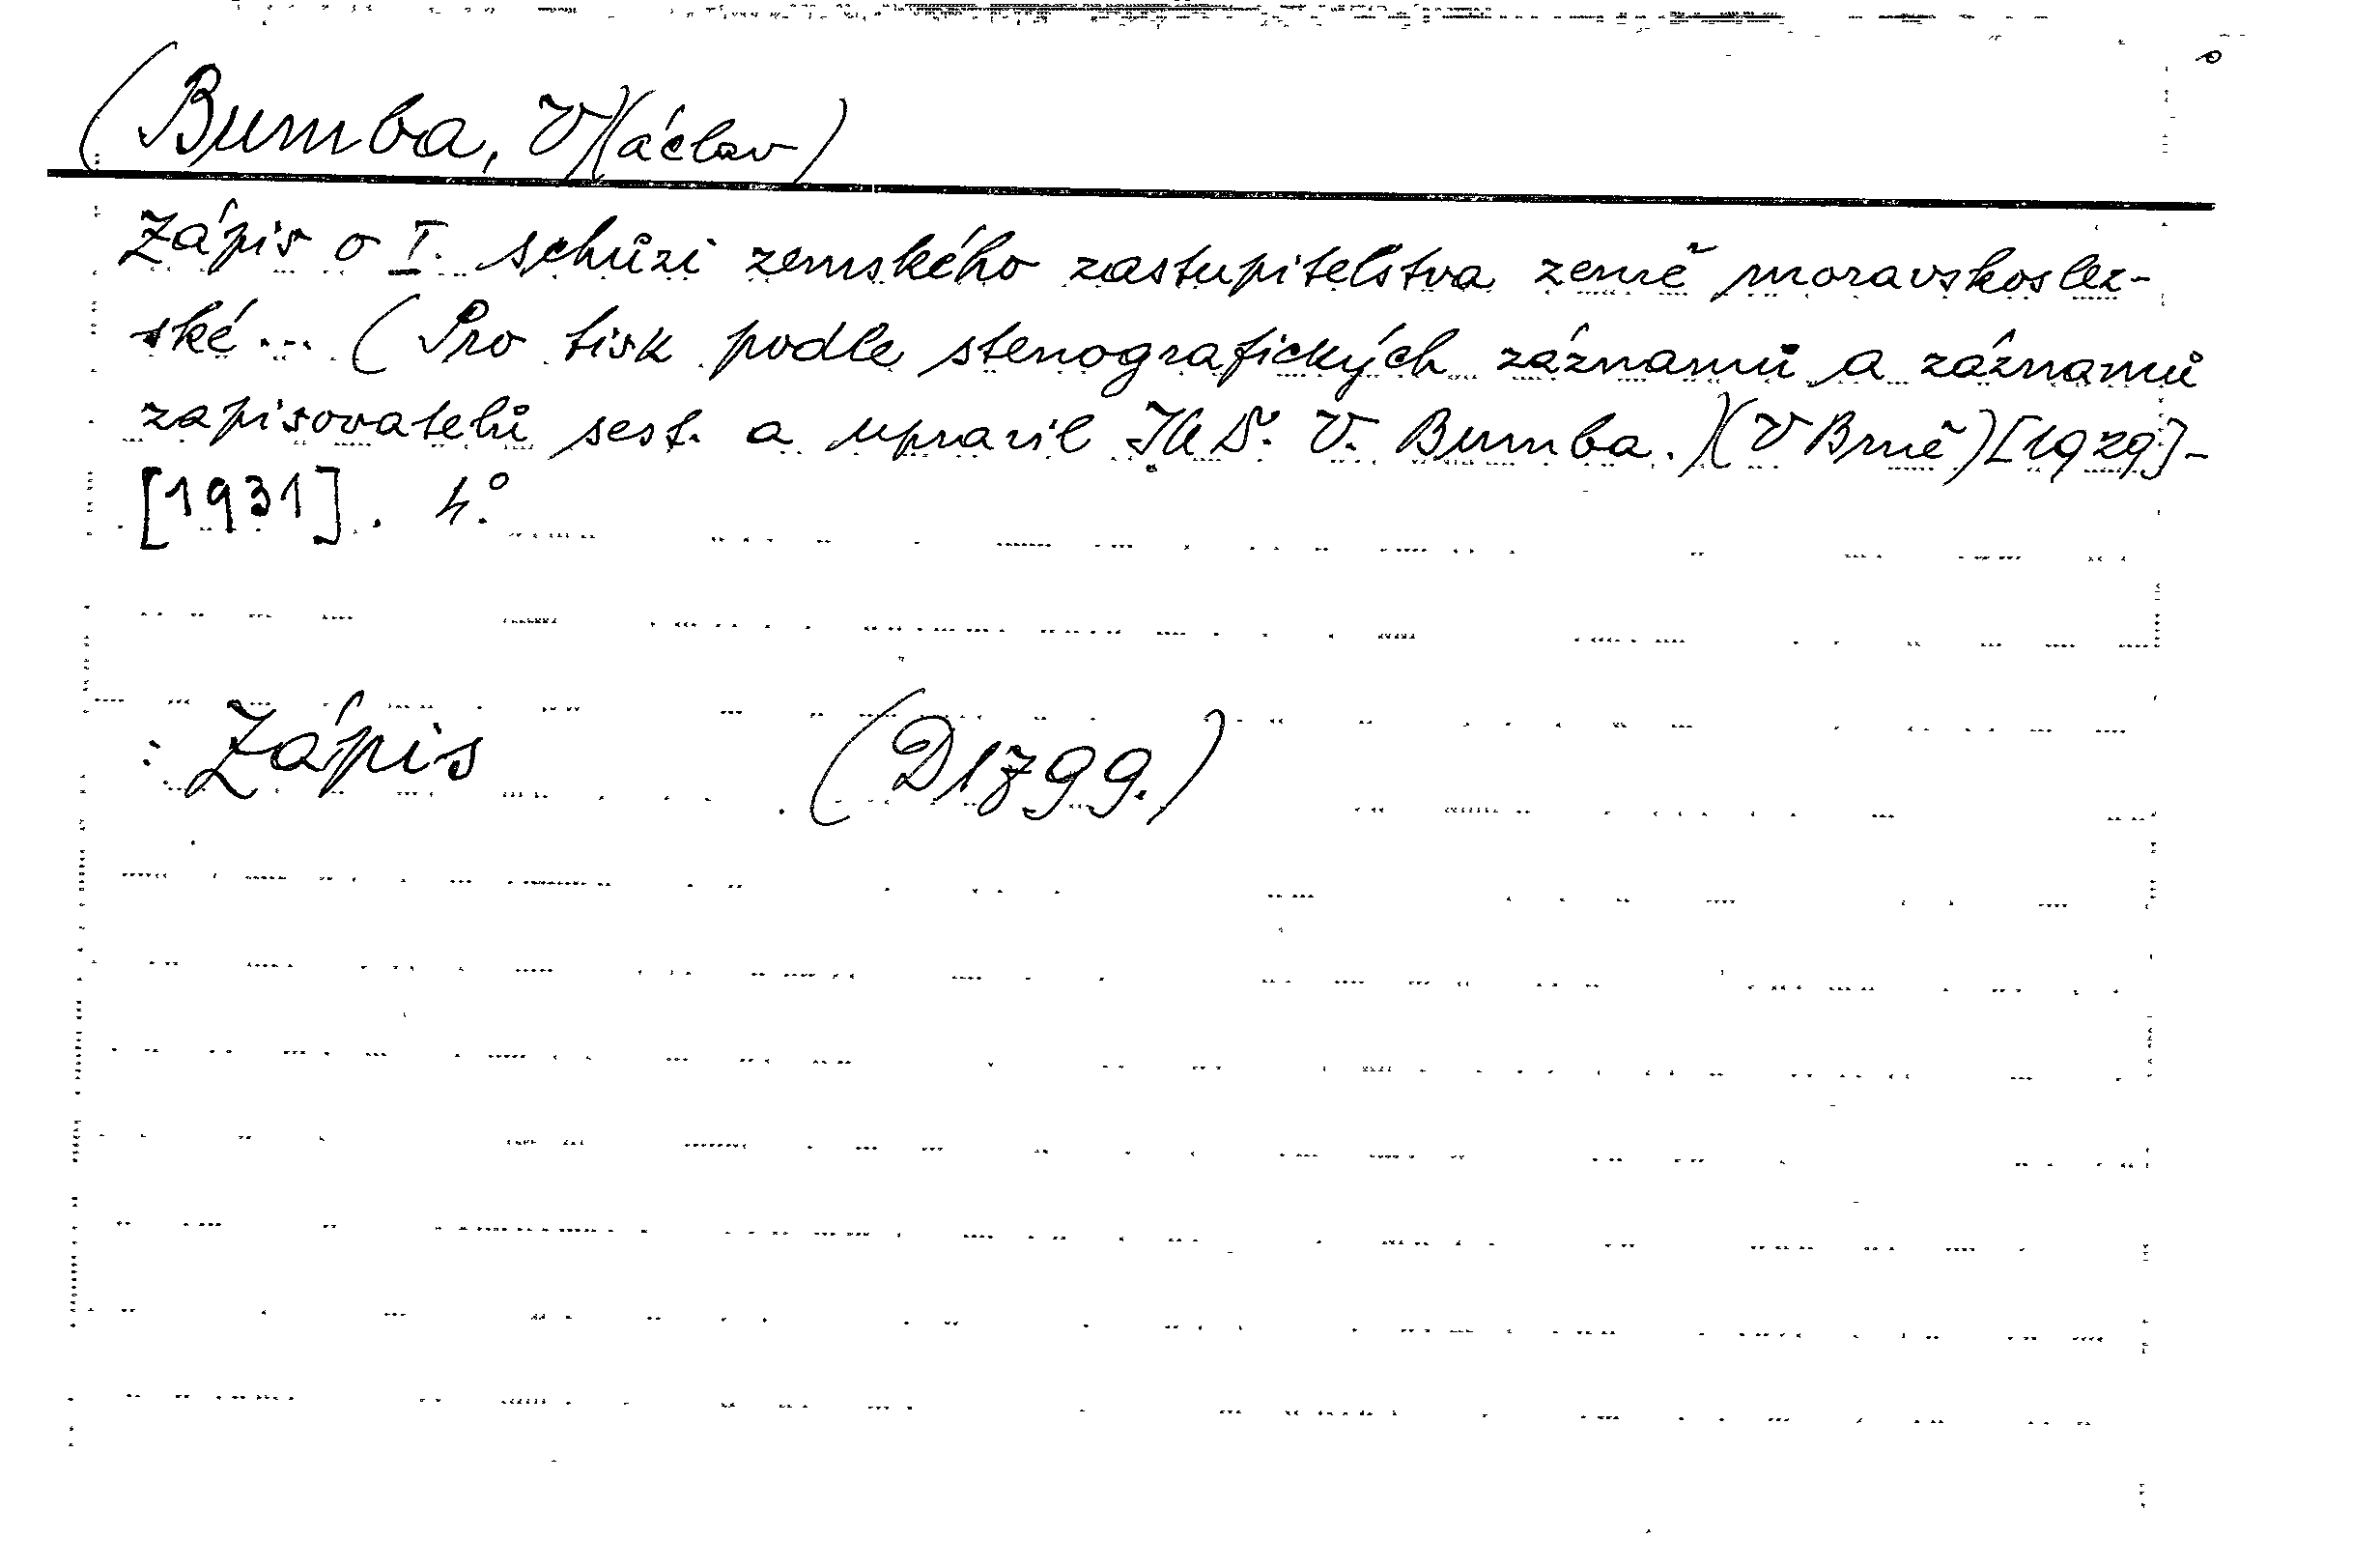 (Bumba, V)(áclav)
Zápis o I. schůzi zemského zastupitelstva země moravskoslez-
ské ... (Pro tisk podle stenografických záznamů a záznamů
zapisovatelů sest. a upravil JUDr. V. Bumba.)(V Brně)[1929]-
[1931]. 4.°
: Zápis (D1799.)